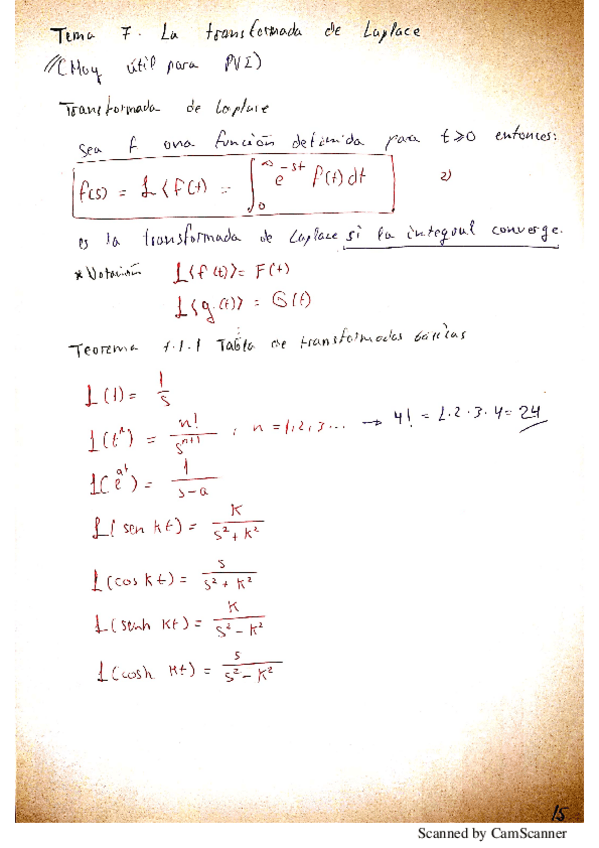 Tema 7. La transformada de Laplace
(Muy útil para PVI)
Transformada de Laplace
Sea f una función definida para t≥0 entonces:
f(s) = L{f(t) = ∫₀^∞ e^{-st} f(t) dt 2)
es la transformada de Laplace si la integral converge.
* Notación L{f(t)} = F(t)
L{g(t)} = G(t)
Teorema 7.1.1 Tabla de transformadas básicas
L(1) = 1/s
L(tⁿ) = n!/s^{n+1} ; n = 1,2,3... → 4! = 1·2·3·4 = 24
L(e^{at}) = 1/(s-a)
L(sen kt) = K/(s²+K²)
L(cos kt) = s/(s²+K²)
L(senh kt) = K/(s²-K²)
L(cosh kt) = s/(s²-K²)
15
Scanned by CamScanner